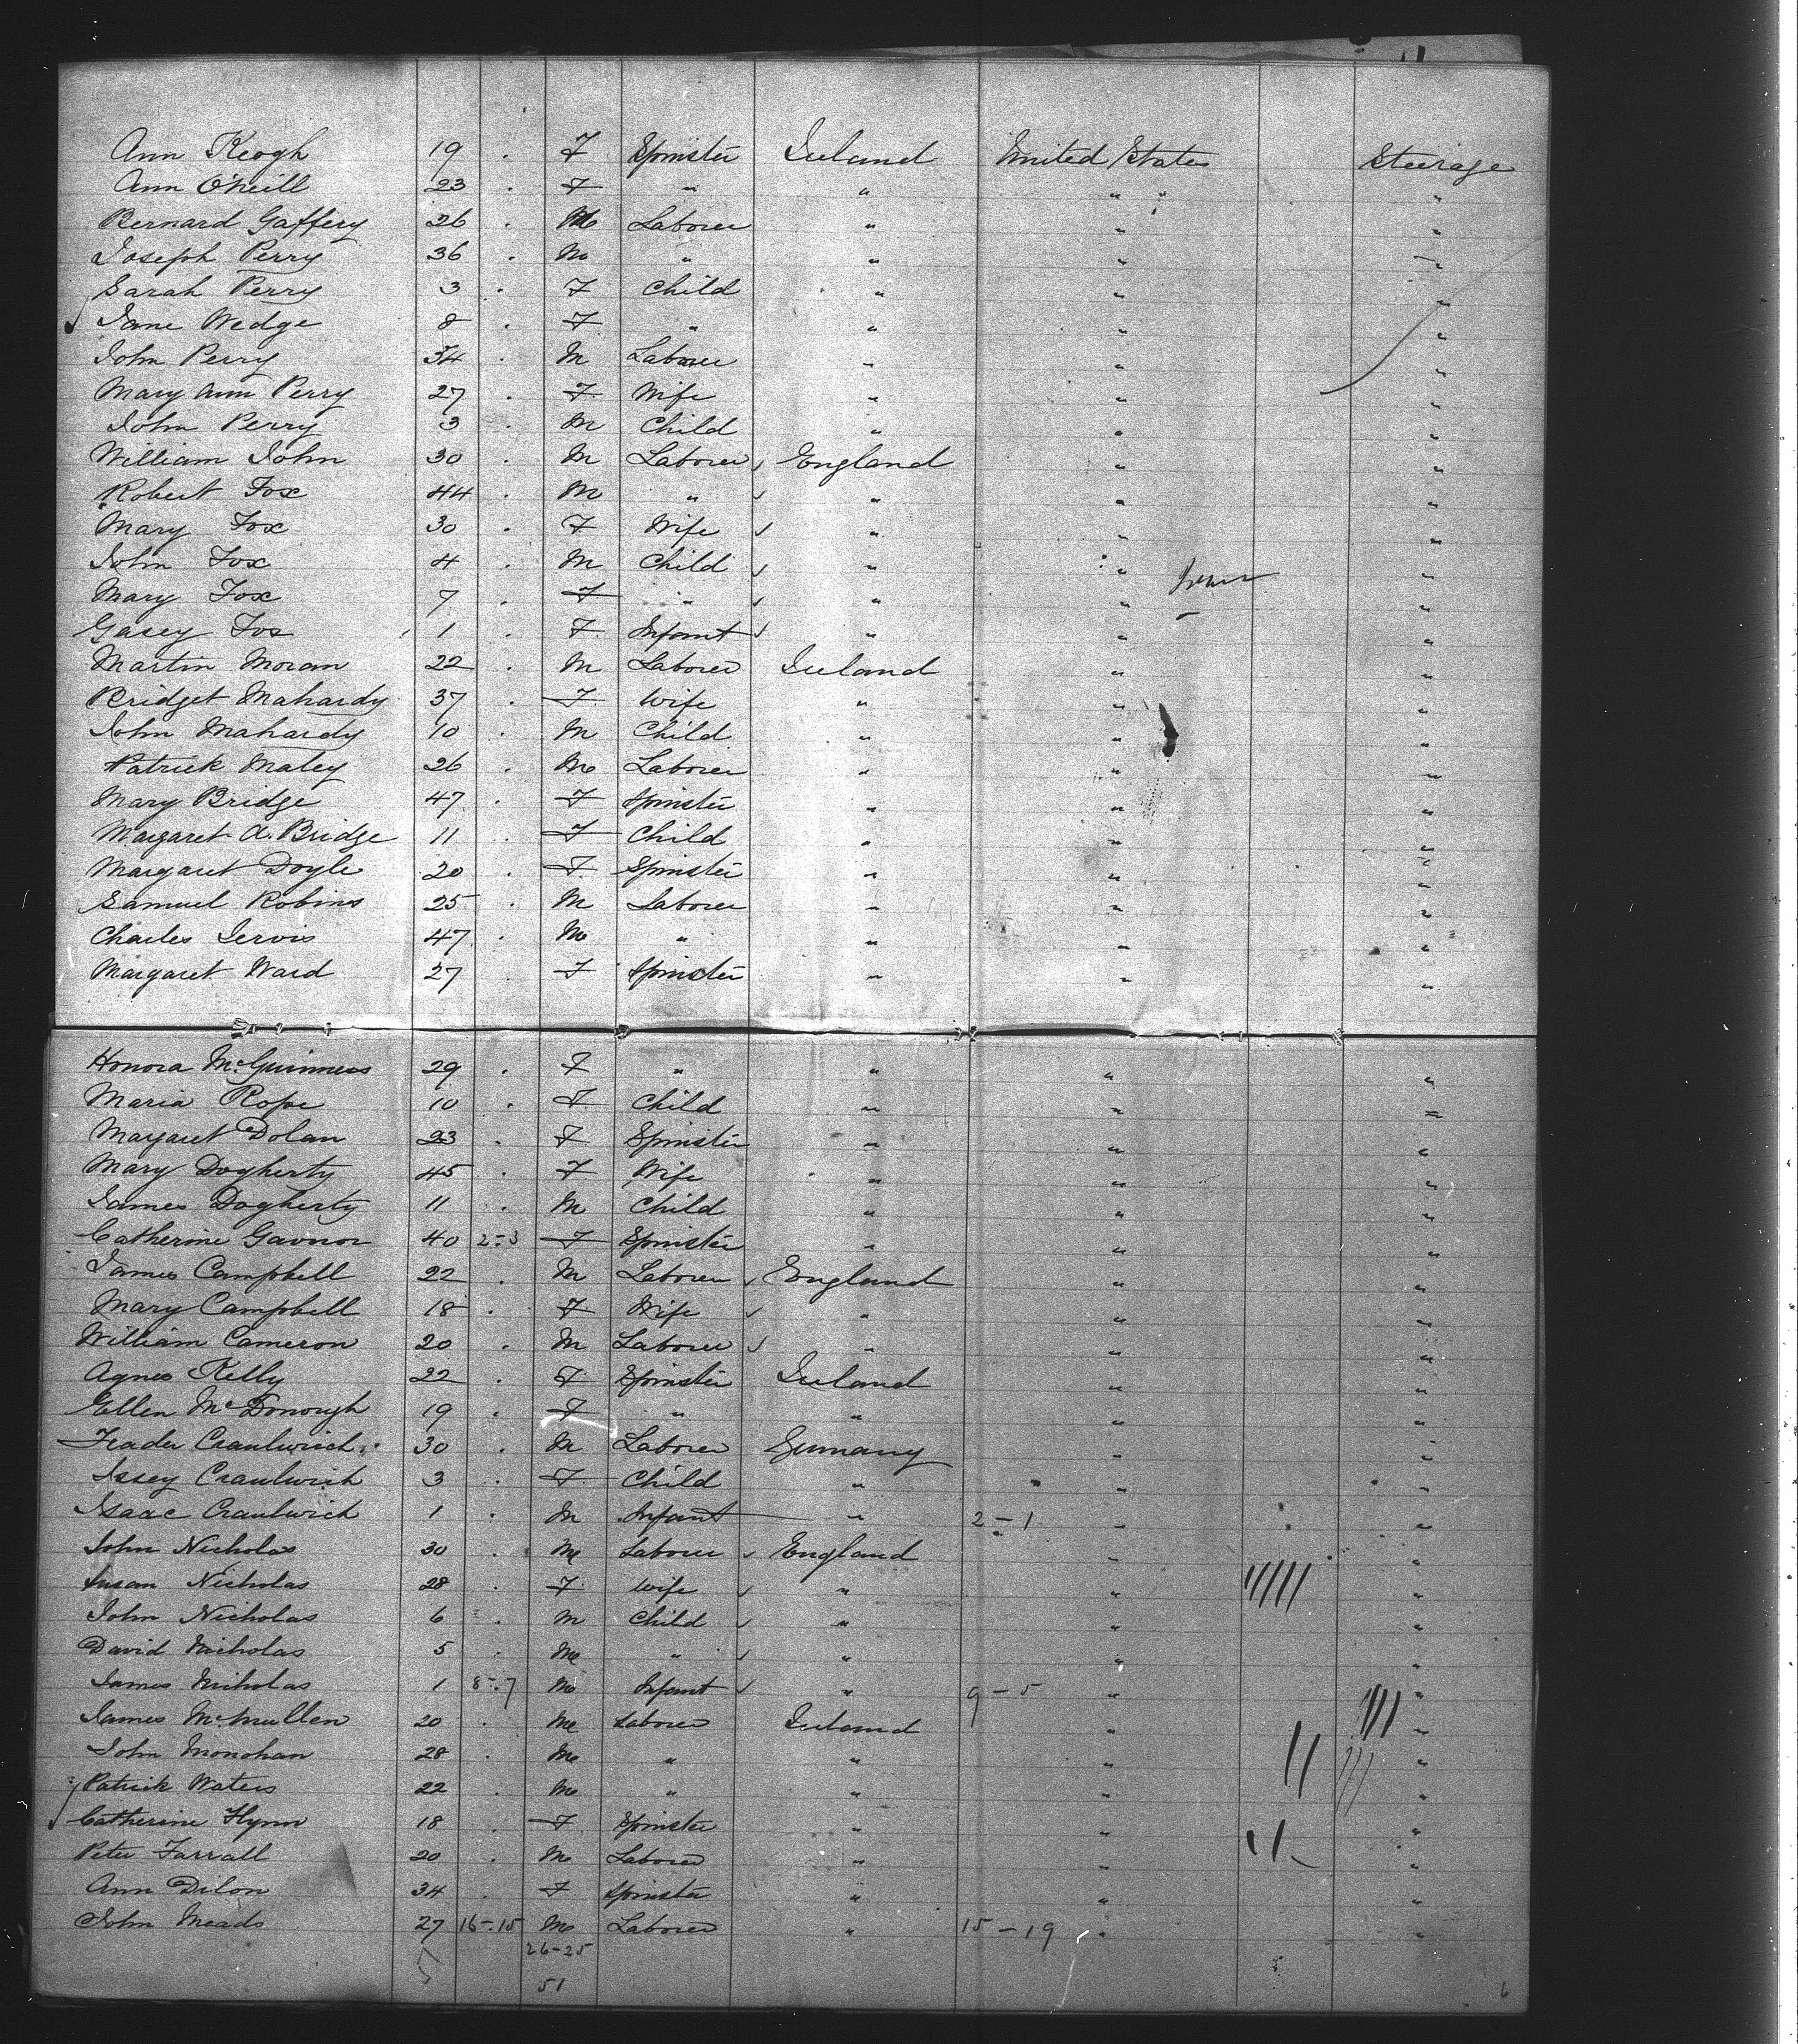 Ann Keogh 19 . F Spinster Ireland United States Steerage
Ann O'Neill 23 . F " " " " "
Bernard Gaffery 26 . M Laborer " " "
Joseph Perry 36 . M " " " "
Sarah Perry 3 . F Child " " "
Jane Wedge 8 . F " " " "
John Perry 34 . M Laborer " " "
Mary Ann Perry 27 . F Wife " " "
John Perry 3 . M Child " " "
William John 30 . M Laborer ✓ England " "
Robert Fox 44 . M " ✓ " " "
Mary Fox 30 . F Wife ✓ " " "
John Fox 4 . M Child ✓ " " "
Mary Fox 7 . F " ✓ " " "
Gasey Fox 1 . F Infant ✓ " " "
Martin Moran 22 . M Laborer Ireland " "
Bridget Mahardy 37 . F Wife " " "
John Mahardy 10 . M Child " " "
Patrick Maley 26 . M Laborer " " "
Mary Bridge 47 . F Spinster " " "
Margaret A. Bridge 11 . F Child " " "
Margaret Doyle 20 . F Spinster " " "
Samuel Robins 25 . M Laborer " " "
Charles Jervis 47 . M " " " "
Margaret Ward 27 . F Spinster " " "
Honora McGuinness 29 . F " " " "
Maria Rope 10 . F Child " " "
Margaret Dolan 23 . F Spinster " " "
Mary Dogherty 45 . F Wife " " "
James Dogherty 11 . M Child " " "
Catherine Gavnor 40 2-3 F Spinster " " "
James Campbell 22 . M Laborer ✓ England " "
Mary Campbell 18 . F Wife ✓ " " "
William Cameron 20 . M Laborer ✓ " " "
Agnes Kelly 22 . F Spinster Ireland " "
Ellen McDonough 19 . F " " " "
Frader Craulwich 30 . M Laborer Germany " "
Issey Craulwich 3 . F Child " " "
Isaac Craulwich 1 . M Infant " 2-1 " "
John Nicholas 30 . M Laborer ✓ England " "
Susan Nicholas 28 . F Wife ✓ " " "
John Nicholas 6 . M Child ✓ " " "
David Nicholas 5 . M " ✓ " " "
James Nicholas 1 8-7 M Infant ✓ " 9-5 " "
James McMullen 20 . M Laborer Ireland " "
John Monohan 28 . M " " " "
Patrick Waters 22 . M " " " "
Catherine Flynn 18 . F Spinster " " "
Peter Farrall 20 . M Laborer " " "
Ann Dilon 34 . F Spinster " " "
John Meads 27 16-15 M Laborer " 15-19 " "
26-25
51